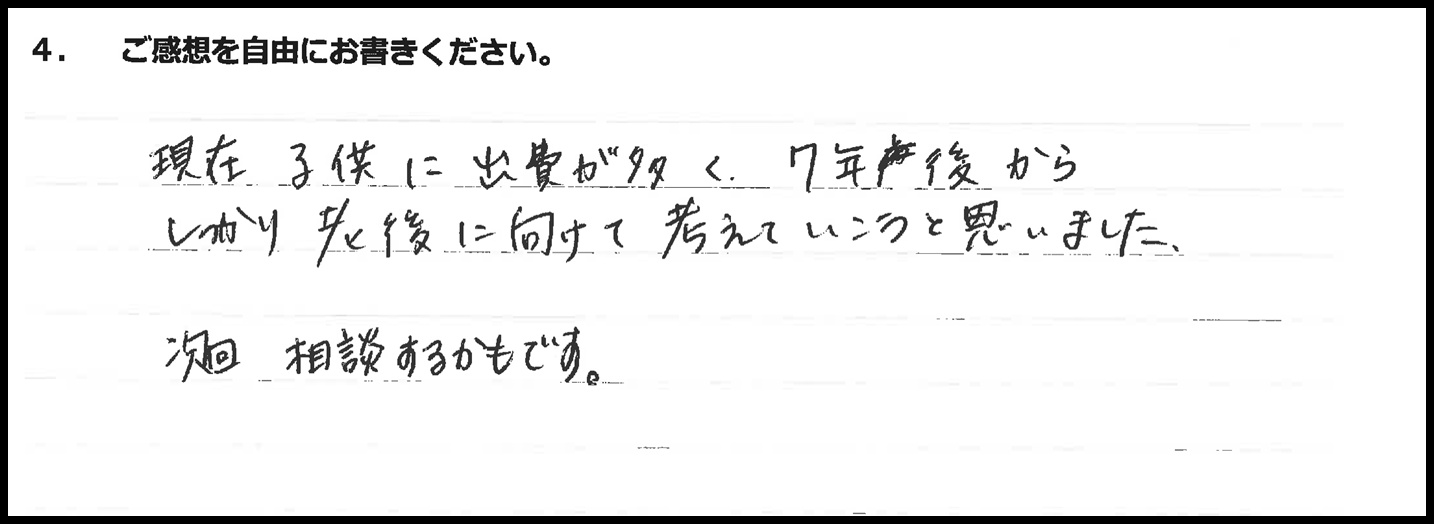 4. ご感想を自由にお書きください。
現在 子供に出費が多く、7年後から
しっかり老後に向けて考えていこうと思いました、
次回 相談するかもです。